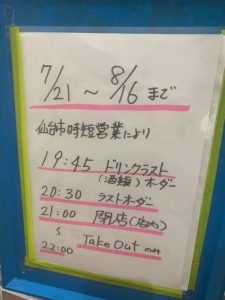 7/21 ～ 8/16 まで
仙台市時短営業により
19:45 ドリンクラスト
(酒類)オーダー
20:30 ラストオーダー
21:00 閉店(店内)
～
22:00 Take Out のみ